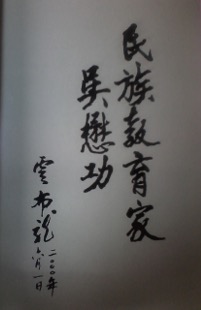 民族教育家
吴懋功
云布龙
二〇〇〇年
六月一日